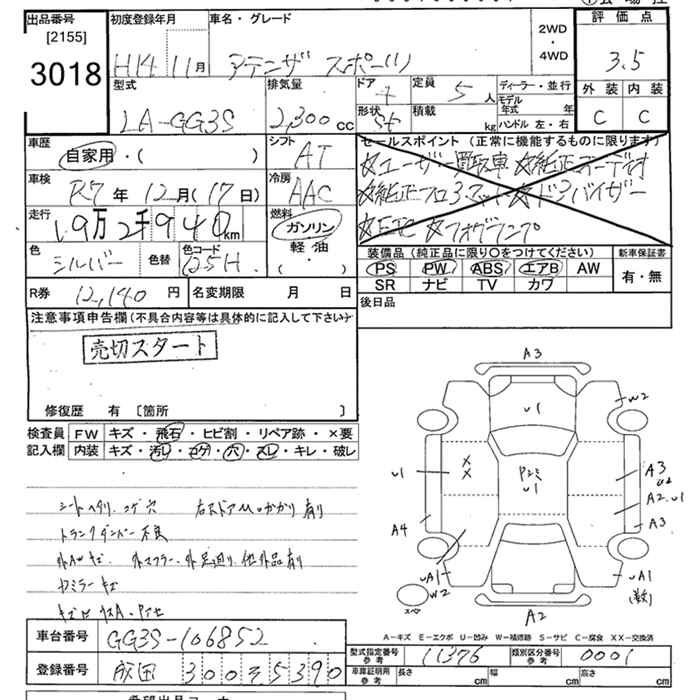 出品番号
[2155]
3018
初度登録年月
H14 11月
車名・グレード
アテンザ スポーツ
2WD
・
4WD
評価点
3.5
外装 内装
C C
型式
LA-GG3S
排気量
2,300 cc
ドア
定員
5 人
形状
5t
積載
kg
ディーラー・並行
モデル年式 年
ハンドル 左・右
車歴
自家用・( )
シフト
AT
セールスポイント (正常に機能するものに限ります)
☆ユーザー買取車 ☆純正オーデオ
☆純正フロアマット ☆ドアバイザー
☆ETC ☆フォグランプ
車検
R7年 12月(17日)
冷房
AAC
走行
19万2千940km
燃料
ガソリン
軽・油
・( )
色
シルバー
色替
色コード
25H
装備品 (純正品に限り○をつけてください)
PS PW ABS エアB AW
SR ナビ TV カワ
新車保証書
有・無
R券 12,140 円
名変期限 月 日
後日品
注意事項申告欄(不具合内容等は具体的に記入して下さい)
売切スタート
修復歴 有 〔箇所 〕
検査員 FW キズ・飛石・ヒビ割・リペア跡・×要
記入欄 内装 キズ・汚レ・コゲ・穴・スレ・キレ・破レ
シートヘタリ、コゲ穴 右
トランクダンパー不良
外AWキズ 外マフラー、外足廻り、他外品有り
ミラーキズ
A3
U1
W2
U1
X
X
U1
A3
U2
A2.U1
A3
A4
UA1
W2
スペア
UA1
(数)
A2
A-キズ E-エクボ U-凹み W-補修跡 S-サビ C-腐食 XX-交換済
車台番号 GG3S-106852
登録番号 成田 300 5390
型式指定番号
参考
11376
類別区分番号
参考
0001
車庫証明用
参考
長さ cm 幅 cm 高さ cm